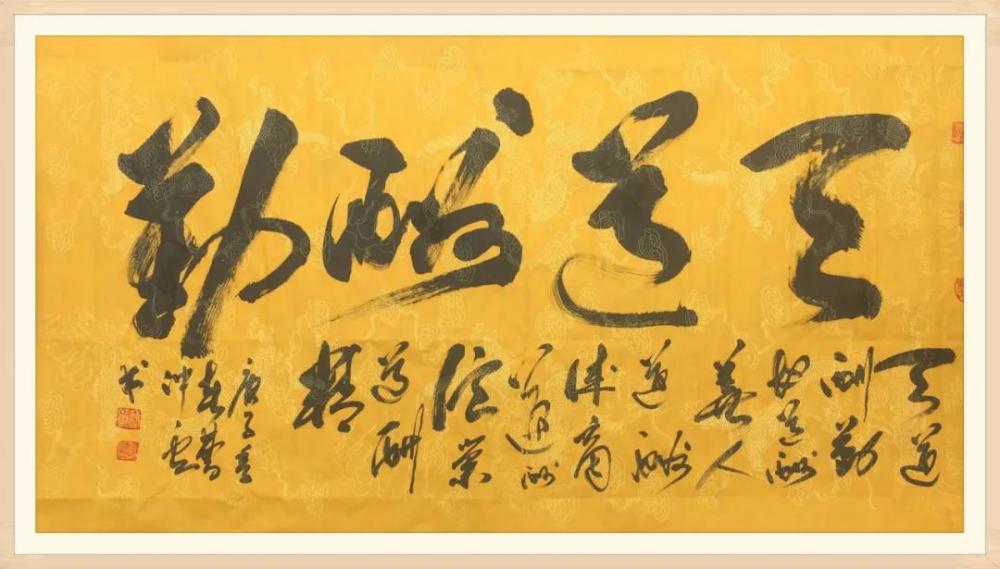 天道酬勤
天道
酬勤
地道酬
善人
道酬
诚商
道酬
信業
道酬
精
庚子
书